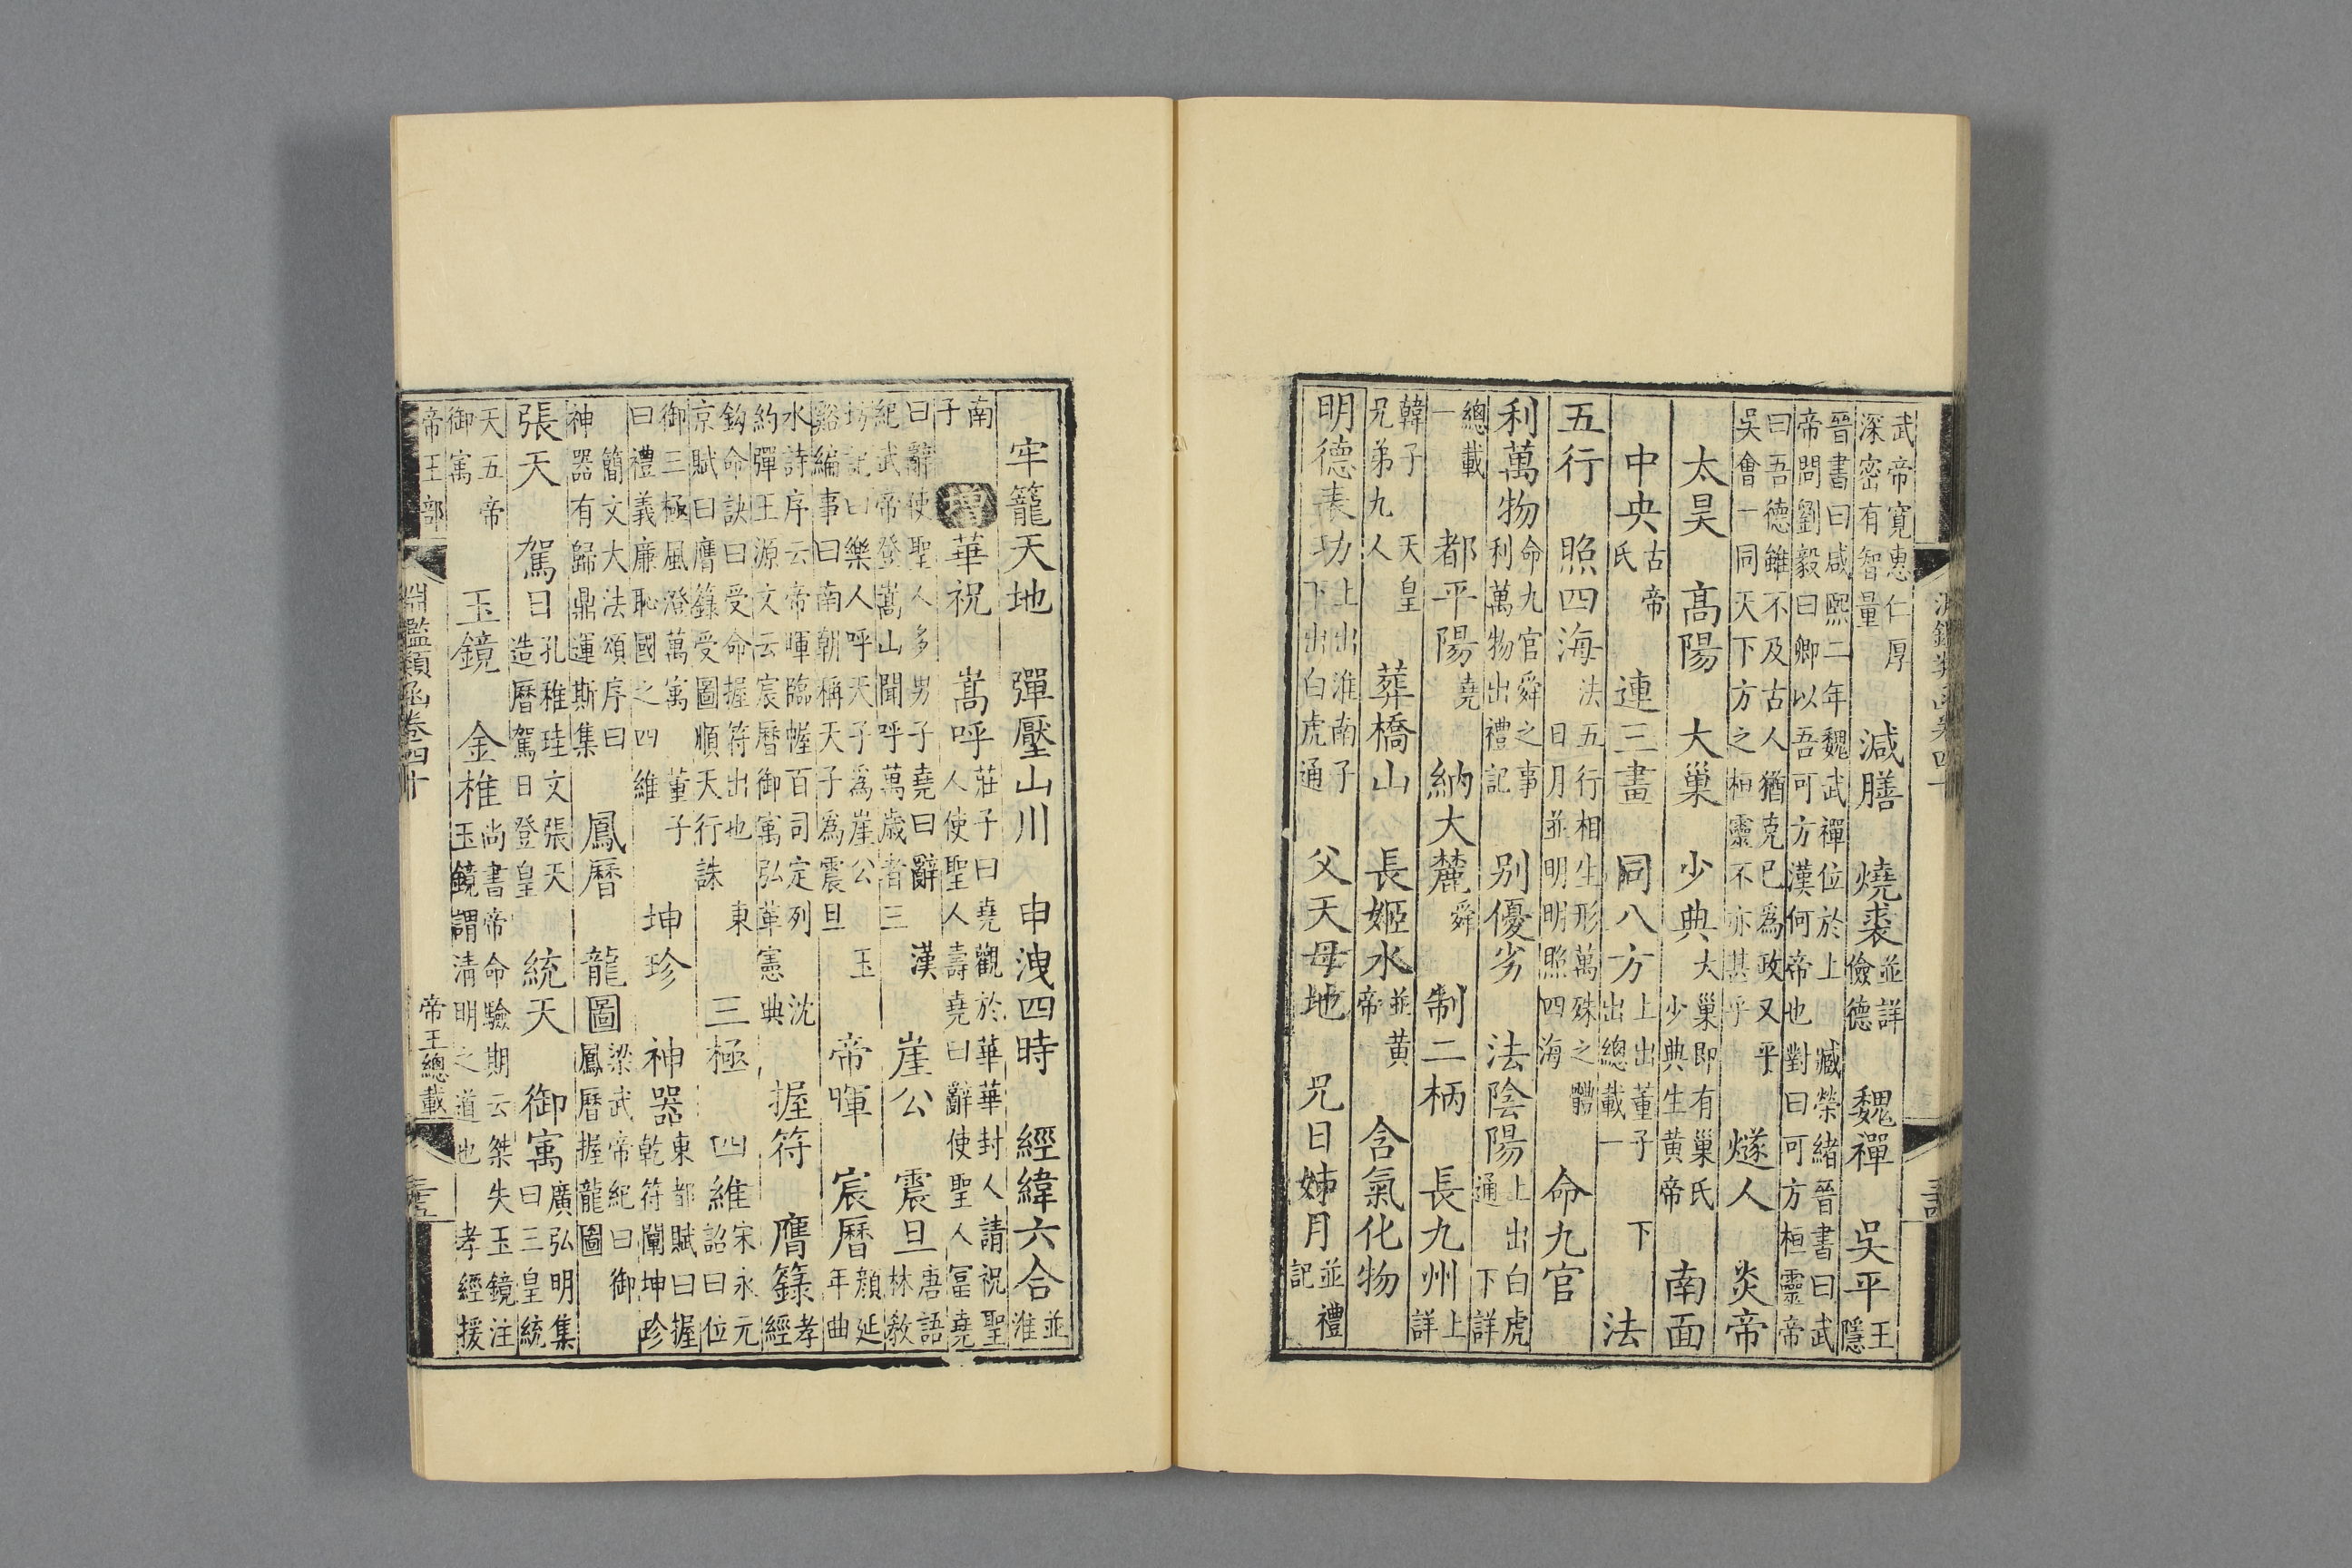 武帝寬惠仁厚
深密有智量
減膳 燒裘 並詳
儉德
魏禪 吳平 王
隱
晉書曰咸熙二年魏武禪位於上 臧榮緒晉書曰武
帝問劉毅曰卿以吾可方漢何帝也對曰可方桓靈帝
曰吾德雖不及古人猶克己為政又平
吳會一同天下方之桓靈不亦甚乎
燧人 炎帝
太昊 高陽 大巢 少典 大巢即有巢氏
少典生黃帝
南面
中央 古帝
氏
連三畫 同八方 上出董子 下
出總載一
法
五行 照四海 法五行相生形萬殊之體
日月並明明照四海
命九官
利萬物 命九官舜之事
利萬物出禮記
別優劣 法陰陽 上出白虎
通 下詳
總載
一
都平陽 堯 納大麓 舜 制二柄 長九州 上
詳
韓子 天皇
兄弟九人
葬橋山 長姬水 並黃
帝
含氣化物
明德表功 上出淮南子
下出白虎通
父天母地 兄日姊月 並禮
記
牢籠天地 彈壓山川 申洩四時 經緯六合 並
淮
南
子
增 華祝 嵩呼 莊子曰堯觀於華華封人請祝聖
人使聖人壽堯曰辭使聖人富堯
曰辭使聖人多男子堯曰辭 漢
紀武帝登嵩山聞呼萬歲者三
崖公 震旦 唐語
林教
坊記曰樂人呼天子為崖公 玉
谿編事曰南朝稱天子為震旦
帝暉 宸曆 顏延
年曲
水詩序云帝暉臨幄百司定列 沈
約彈王源文云宸曆御寓弘革憲典
握符 膺籙 孝
經
鈎命訣曰受命握符出也 東
京賦曰膺籙受圖順天行誅
三極 四維 宋永元
詔曰位
御三極風澄萬寓 董子
曰禮義廉恥國之四維
坤珍 神器 東都賦曰握
乾符闡坤珍
簡文大法頌序曰
神器有歸鼎運斯集
鳳曆 龍圖 梁武帝紀曰御
鳳曆握龍圖
張天 駕日 孔稚珪文張天
造曆駕日登皇
統天 御寓 廣弘明集
曰三皇統
天五帝
御寓
玉鏡 金椎 尚書帝命驗期云桀失玉鏡注
玉鏡謂清明之道也 孝經援
帝王部 淵鑑類函卷四十 帝王總載 三十五